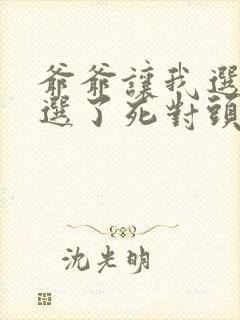 爺爺讓我選
選了死對頭
沈光明